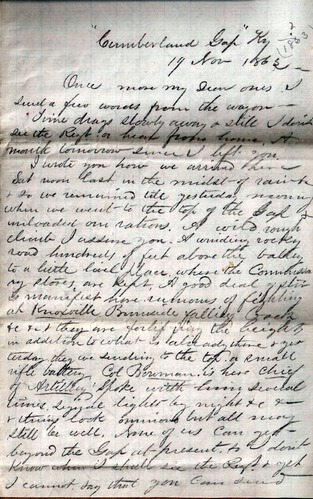 "Cumberland Gap" Ky
19 Nov 1863
(1863)
Once more my dear ones I
send a few words from the wagon
Time drags slowly away & still I don't
see the Regt or hear from home. A
month tomorrow since I left you
I wrote you how we arrived here
Sat noon last in the midst of rain &
& so we remained till yesterday morning
when we went to the top of the Gap &
unloaded our rations. A wild rough
climb I assure you. A winding rocky
road hundreds of feet above the valley
to a little level place, where the Commissary
stores, are kept. A good deal of
is manifest here rumors of fighting
at Knoxville Burnside falling back
& c & c they are fortifying the heights
in addition to what is already there &
today they are sending to the top a small
rifle battery. Col Bowman, is here chief
of "Artillery" Spoke with him several
times, signal lights by night & c &
& things look ominous but all may
still be well, None of us can get
beyond the Gap at present, so I don't
know when I shall see the Regt & yet
I cannot say that you can send